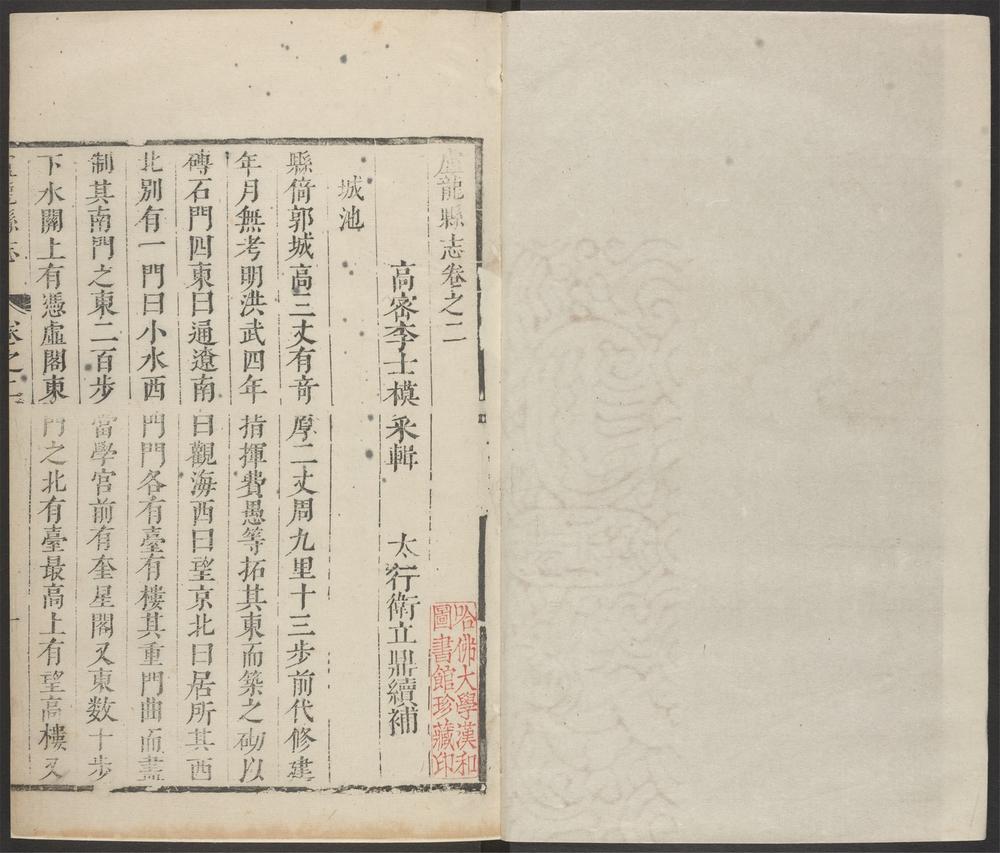 盧龍縣志卷之二
高密李士模采輯 太行衛立鼎續補
城池
縣倚郭城高三丈有奇厚二丈周九里十三步前代修建
年月無考明洪武四年指揮費愚等拓其東而築之砌以
磚石門四東曰通遼南曰觀海西曰望京北曰居所其西
北別有一門曰小水西門門各有臺有樓其重門曲而盡
制其南門之東二百步當學宮前有奎星閣又東数十步
下水關上有憑虛閣東門之北有臺最高上有望高樓又
盧龍縣志 卷之二 一
哈佛大學漢和
圖書館珍藏印